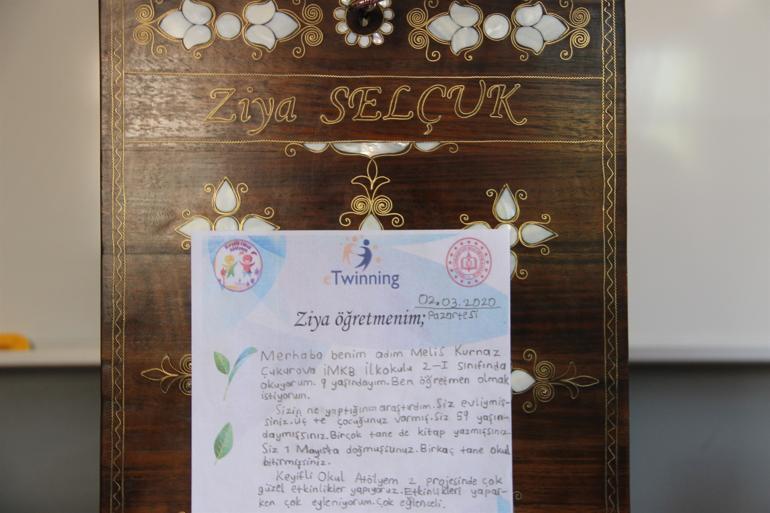 Ziya SELÇUK
eTwinning
02.03.2020
Ziya öğretmenim; Pazartesi
Merhaba benim adım Melis Kurnaz
Çukurova İMKB İlkokulu 2-I sınıfında
okuyorum. 9 yaşındayım. Ben öğretmen olmak
istiyorum.
Sizin ne yaptığınızı araştırdım. Siz evliymiş-
siniz. Üç te çocuğunuz varmış. Siz 59 yaşın-
daymışsınız. Birçok tane de kitap yazmışsınız.
Siz 1 Mayısta doğmuşsunuz. Birkaç tane okul
bitirmişsiniz.
Keyifli Okul Atölyem 2 projesinde çok
güzel etkinlikler yapıyoruz. Etkinlikleri yapar-
ken çok eğleniyorum. Çok eğlenceli.